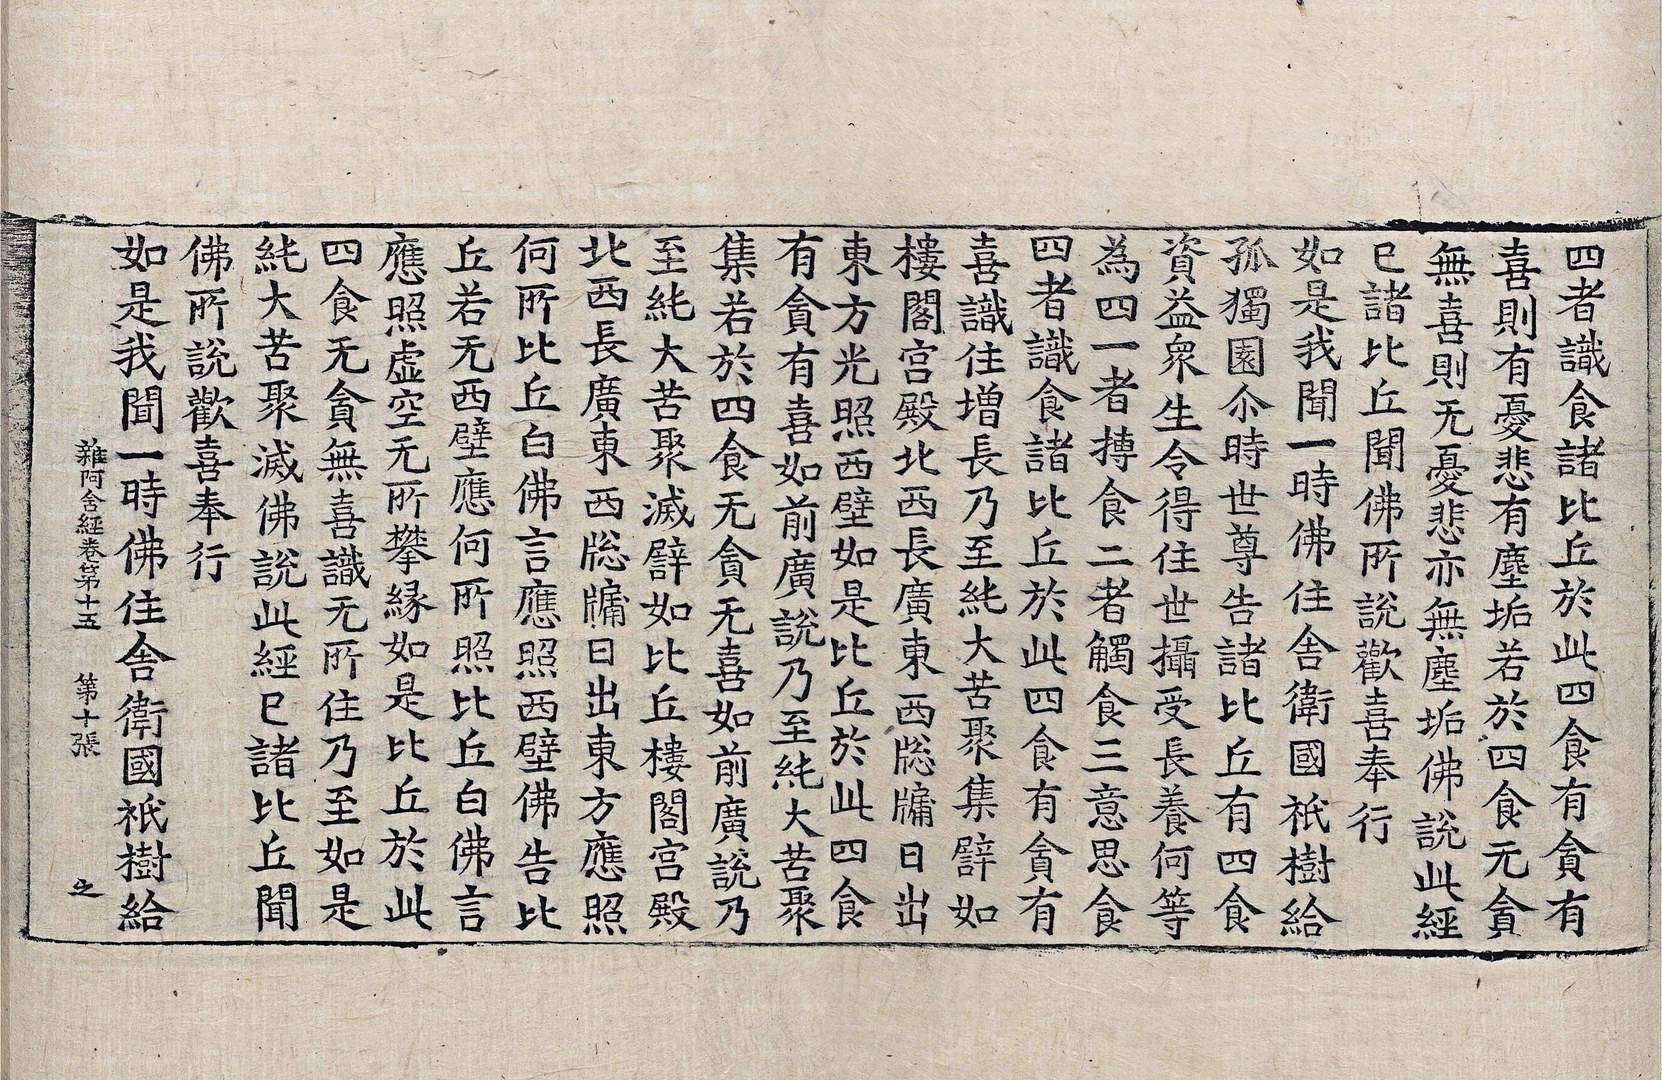 四者識食諸比丘於此四食有貪有
喜則有憂悲有塵垢若於四食无貪
無喜則无憂悲亦無塵垢佛說此經
已諸比丘聞佛所說歡喜奉行
如是我聞一時佛住舍衛國祇樹給
孤獨園尒時世尊告諸比丘有四食
資益衆生令得住世攝受長養何等
為四一者摶食二者觸食三意思食
四者識食諸比丘於此四食有貪有
喜識住增長乃至純大苦聚集譬如
樓閣宮殿北西長廣東西窓牖日出
東方光照西壁如是比丘於此四食
有貪有喜如前廣說乃至純大苦聚
集若於四食无貪无喜如前廣說乃
至純大苦聚滅譬如比丘樓閣宮殿
北西長廣東西窓牖日出東方應照
何所比丘白佛言應照西壁佛告比
丘若无西壁應何所照比丘白佛言
應照虛空无所攀緣如是比丘於此
四食无貪無喜識无所住乃至如是
純大苦聚滅佛說此經已諸比丘聞
佛所說歡喜奉行
如是我聞一時佛住舍衛國祇樹給
雜阿含經卷第十五 第十張 之